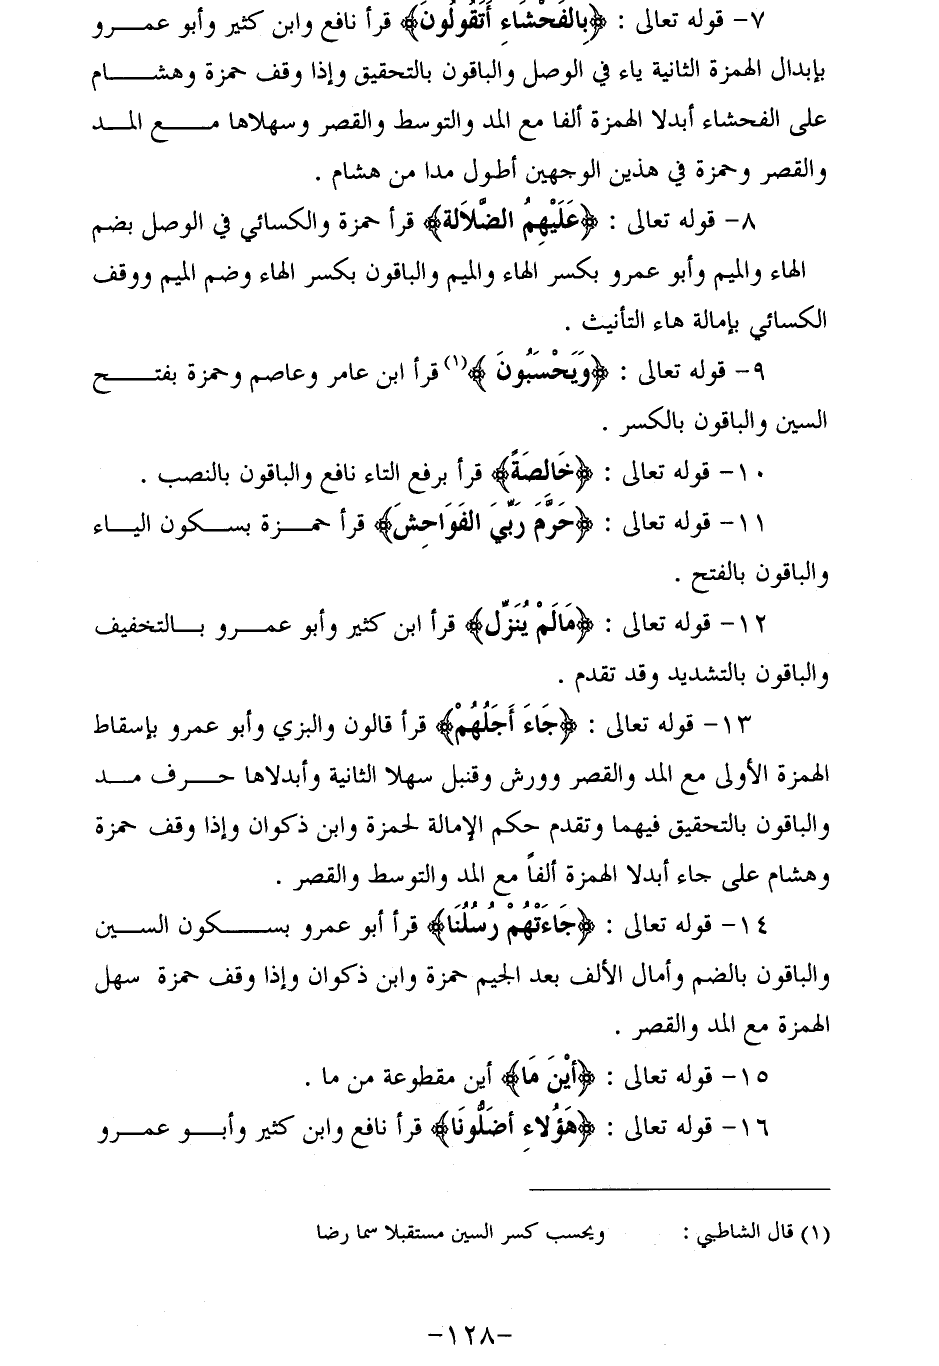 ٧- قوله تعالى : ﴿بِالفَحْشَاءِ أَتَقُولُونَ﴾ قرأ نافع وابن كثير وأبو عمـــرو
بإبدال الهمزة الثانية ياء في الوصل والباقون بالتحقيق وإذا وقف حمزة وهشــــام
على الفحشاء أبدلا الهمزة ألفا مع المد والتوسط والقصر وسهلاها مـــع المـــد
والقصر وحمزة في هذين الوجهين أطول مدا من هشام .
٨- قوله تعالى : ﴿عَلَيْهِمُ الضَّلاَلة﴾ قرأ حمزة والكسائي في الوصل بضم
الهاء والميم وأبو عمرو بكسر الهاء والميم والباقون بكسر الهاء وضم الميم ووقف
الكسائي بإمالة هاء التأنيث .
٩- قوله تعالى : ﴿وَيَحْسَبُونَ ﴾(١) قرأ ابن عامر وعاصم وحمزة بفتــــح
السين والباقون بالكسر .
١٠- قوله تعالى : ﴿خَالِصَةً﴾ قرأ برفع التاء نافع والباقون بالنصب .
١١- قوله تعالى : ﴿حَرَّمَ رَبِّيَ الفَوَاحِشَ﴾ قرأ حمـــزة بســـكون اليـــاء
والباقون بالفتح .
١٢- قوله تعالى : ﴿مَالَمْ يُنَزِّل﴾ قرأ ابن كثير وأبو عمـــرو بـــالتخفيف
والباقون بالتشديد وقد تقدم .
١٣- قوله تعالى : ﴿جَاءَ أَجَلُهُمْ﴾ قرأ قالون والبزي وأبو عمرو بإسقاط
الهمزة الأولى مع المد والقصر وورش وقنبل سهلا الثانية وأبدلاها حـــرف مـــد
والباقون بالتحقيق فيهما وتقدم حكم الإمالة لحمزة وابن ذكوان وإذا وقف حمزة
وهشام على جاء أبدلا الهمزة ألفاً مع المد والتوسط والقصر .
١٤- قوله تعالى : ﴿جَاءَتْهُمْ رُسُلُنَا﴾ قرأ أبو عمرو بســــكون الســـين
والباقون بالضم وأمال الألف بعد الجيم حمزة وابن ذكوان وإذا وقف حمزة سهل
الهمزة مع المد والقصر .
١٥- قوله تعالى : ﴿أَيْنَ مَا﴾ أين مقطوعة من ما .
١٦- قوله تعالى : ﴿هَؤُلاءِ أضَلُّونَا﴾ قرأ نافع وابن كثير وأبـــو عمـــرو
(١) قال الشاطبي : ويحسب كسر السين مستقبلا سما رضا
-١٢٨-